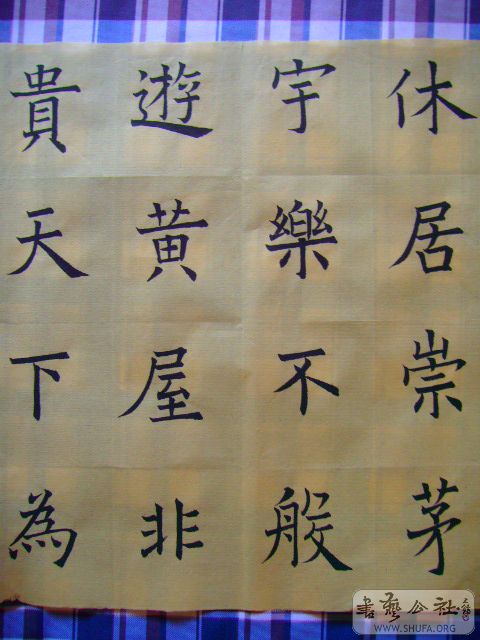 休居崇茅
宇樂不般
遊黄屋非
貴天下為
書藝公社
WWW.SHUFA.ORG